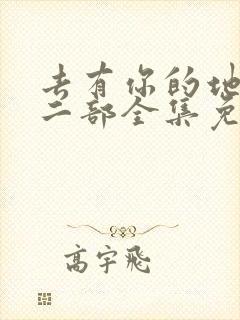 去有你的地
二部全集免
高宇飛